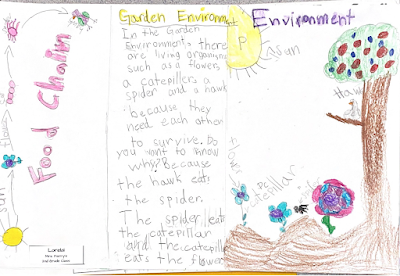 Food Chain
flower
Sun
Garden Environment
In the Garden
Environment, there
are living organisms
such as a flowers,
a catepillers a
spider and a hawk
because they
need each other
to survive. Do
you want to know
why? Because
the hawk eats
the spider.
The spider eats
the catepillar
and the catepiller
eats the flower
Environment
P
Sun
Hawk
flower
catepillar
Londa